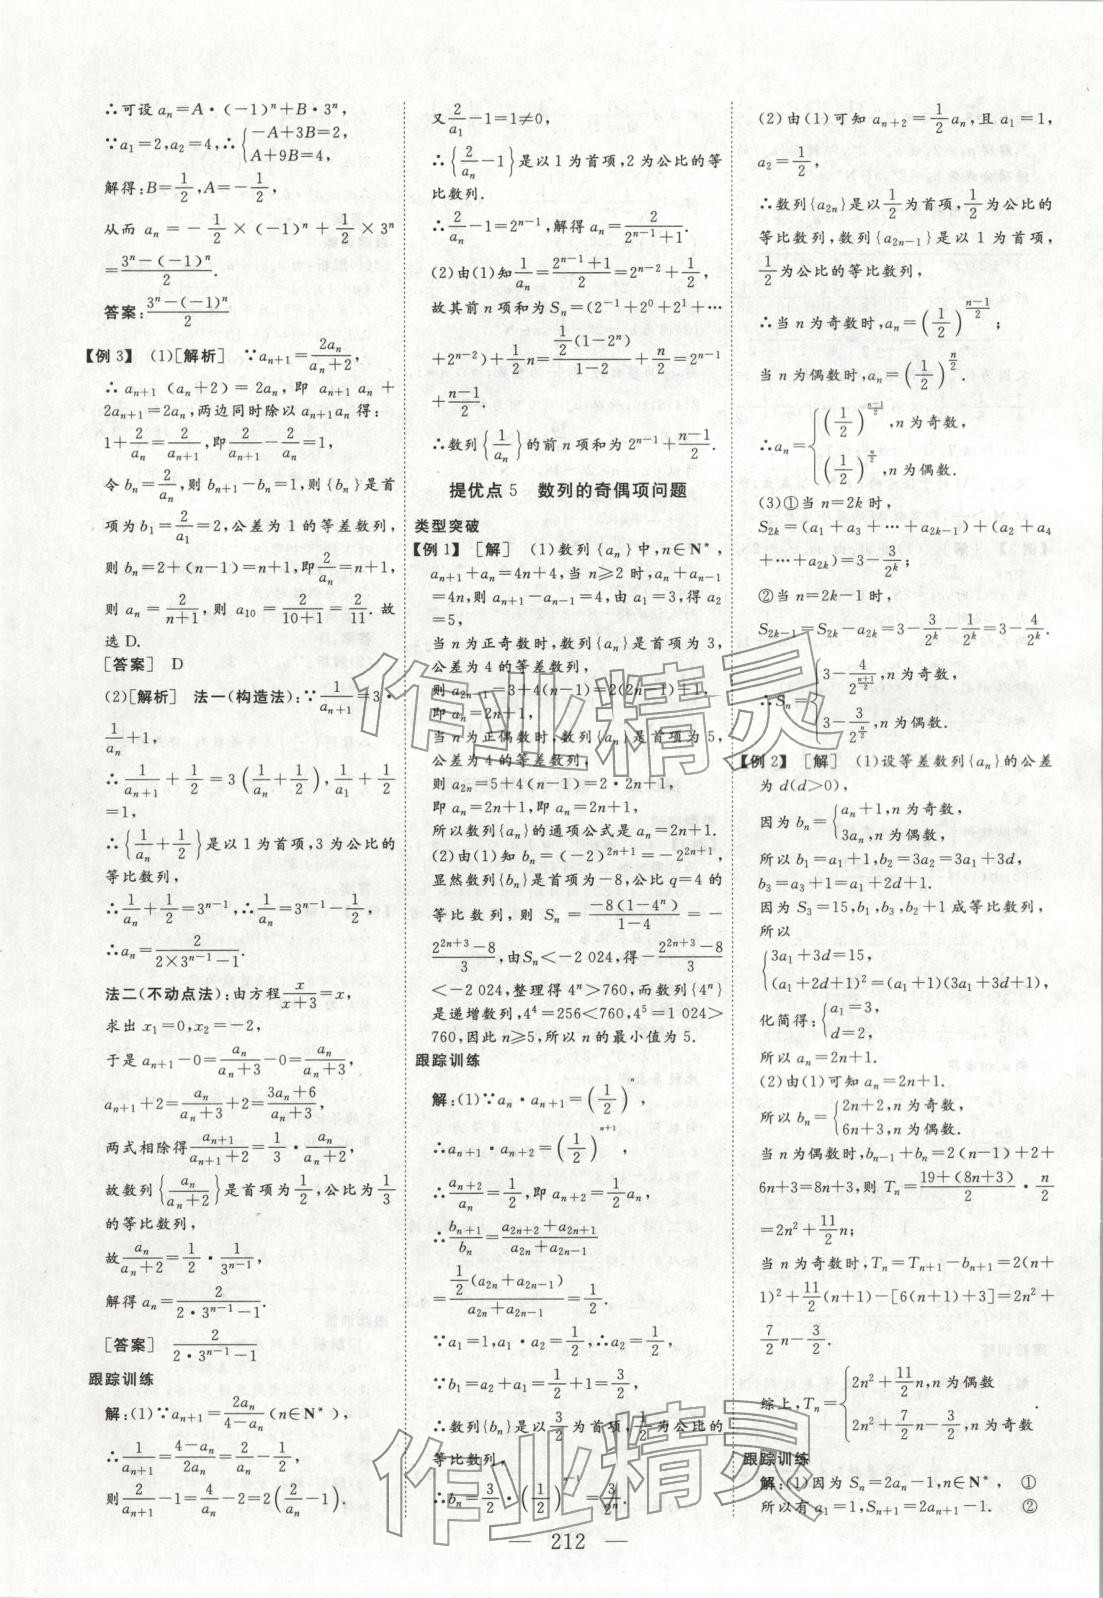 ∴可设 aₙ=A·(-1)ⁿ+B·3ⁿ,
∵a₁=2,a₂=4,∴{-A+3B=2, A+9B=4,
解得:B=1/2,A=-1/2,
从而 aₙ=-1/2×(-1)ⁿ+1/2×3ⁿ
=(3ⁿ-(-1)ⁿ)/2.
答案:(3ⁿ-(-1)ⁿ)/2
【例 3】 (1)[解析] ∵aₙ₊₁=2aₙ/(aₙ+2),
∴aₙ₊₁(aₙ+2)=2aₙ,即 aₙ₊₁aₙ+
2aₙ₊₁=2aₙ,两边同时除以 aₙ₊₁aₙ 得:
1+2/aₙ=2/aₙ₊₁,即2/aₙ₊₁-2/aₙ=1,
令 bₙ=2/aₙ,则 bₙ₊₁-bₙ=1,则{bₙ}是首
项为 b₁=2/a₁=2,公差为 1 的等差数列,
则 bₙ=2+(n-1)=n+1,即2/aₙ=n+1,
则 aₙ=2/(n+1),a₁₀=2/(10+1)=2/11.故
选 D.
[答案] D
(2)[解析] 法一(构造法):∵1/aₙ₊₁=3·
1/aₙ+1,
∴1/aₙ₊₁+1/2=3(1/aₙ+1/2),1/a₁+1/2
=1,
∴{1/aₙ+1/2}是以 1 为首项,3 为公比的
等比数列,
∴1/aₙ+1/2=3ⁿ⁻¹,∴1/aₙ=3ⁿ⁻¹-1/2,
∴aₙ=2/(2×3ⁿ⁻¹-1).
法二(不动点法):由方程x/(x+3)=x,
求出 x₁=0,x₂=-2,
于是 aₙ₊₁-0=aₙ/(aₙ+3)-0=aₙ/(aₙ+3),
aₙ₊₁+2=aₙ/(aₙ+3)+2=(3aₙ+6)/(aₙ+3),
两式相除得aₙ₊₁/(aₙ₊₁+2)=1/3·aₙ/(aₙ+2),
故数列{aₙ/(aₙ+2)}是首项为1/2,公比为1/3
的等比数列,
故aₙ/(aₙ+2)=1/2·1/3ⁿ⁻¹,
解得 aₙ=2/(2·3ⁿ⁻¹-1).
[答案] 2/(2·3ⁿ⁻¹-1)
跟踪训练
解:(1)∵aₙ₊₁=2aₙ/(4-aₙ)(n∈N*),
∴1/aₙ₊₁=(4-aₙ)/2aₙ=2/aₙ-1/2,
则2/aₙ₊₁-1=4/aₙ-2=2(2/aₙ-1).
又2/a₁-1=1≠0,
∴{2/aₙ-1}是以 1 为首项,2 为公比的等
比数列.
∴2/aₙ-1=2ⁿ⁻¹,解得 aₙ=2/(2ⁿ⁻¹+1).
(2)由(1)知1/aₙ=(2ⁿ⁻¹+1)/2=2ⁿ⁻²+1/2,
故其前 n 项和为 Sₙ=(2⁻¹+2⁰+2¹+…
+2ⁿ⁻²)+1/2n=(1/2(1-2ⁿ))/(1-2)+n/2=2ⁿ⁻¹
+(n-1)/2.
∴数列{1/aₙ}的前 n 项和为 2ⁿ⁻¹+(n-1)/2.
提优点 5 数列的奇偶项问题
类型突破
【例 1】 [解] (1)数列{aₙ}中,n∈N*,
aₙ₊₁+aₙ=4n+4,当 n≥2 时,aₙ+aₙ₋₁
=4n,则 aₙ₊₁-aₙ₋₁=4,由 a₁=3,得 a₂
=5,
当 n 为正奇数时,数列{aₙ}是首项为 3,
公差为 4 的等差数列,
则 a₂ₙ₋₁=3+4(n-1)=2(2n-1)+1,
即 aₙ=2n+1,
当 n 为正偶数时,数列{aₙ}是首项为 5,
公差为 4 的等差数列,
a₂ₙ=5+4(n-1)=2·2n+1,
即 aₙ=2n+1,即 aₙ=2n+1,
所以数列{aₙ}的通项公式是 aₙ=2n+1.
(2)由(1)知 bₙ=(-2)²ⁿ⁺¹=-2²ⁿ⁺¹,
显然数列{bₙ}是首项为-8,公比 q=4 的
等比数列,则 Sₙ=-8(1-4ⁿ)/(1-4)=-
(2²ⁿ⁺³-8)/3,由 Sₙ<-2 024,得-(2²ⁿ⁺³-8)/3
<-2 024,整理得 4ⁿ>760,而数列{4ⁿ}
是递增数列,4⁴=256<760,4⁵=1 024>
760,因此 n≥5,所以 n 的最小值为 5.
跟踪训练
解:(1)∵aₙ·aₙ₊₁=(1/2)ⁿ,
∴aₙ₊₁·aₙ₊₂=(1/2)ⁿ⁺¹,
∴aₙ₊₂/aₙ=1/2,即 aₙ₊₂=1/2aₙ.
∴bₙ₊₁/bₙ=(a₂ₙ₊₂+a₂ₙ₊₁)/(a₂ₙ+a₂ₙ₋₁)
=(1/2(a₂ₙ+a₂ₙ₋₁))/(a₂ₙ+a₂ₙ₋₁)=1/2,
∵a₁=1,a₁·a₂=1/2,∴a₂=1/2,
∵b₁=a₂+a₁=1/2+1=3/2,
∴数列{bₙ}是以3/2为首项,1/2为公比的
等比数列,
∴bₙ=3/2·(1/2)ⁿ⁻¹=3/2ⁿ.
(2)由(1)可知 aₙ₊₂=1/2aₙ,且 a₁=1,
a₂=1/2,
∴数列{a₂ₙ}是以1/2为首项,1/2为公比的
等比数列,数列{a₂ₙ₋₁}是以 1 为首项,
1/2为公比的等比数列,
∴当 n 为奇数时,aₙ=(1/2)^((n-1)/2);
当 n 为偶数时,aₙ=(1/2)^(n/2).
∴aₙ={(1/2)^((n-1)/2),n为奇数, (1/2)^(n/2),n为偶数.
(3)①当 n=2k 时,
S₂ₖ=(a₁+a₃+…+a₂ₖ₋₁)+(a₂+a₄
+…+a₂ₖ)=3-3/2ᵏ;
②当 n=2k-1 时,
S₂ₖ₋₁=S₂ₖ-a₂ₖ=3-3/2ᵏ-1/2ᵏ=3-4/2ᵏ.
∴Sₙ={3-4/2^((n+1)/2),n为奇数, 3-3/2^(n/2),n为偶数.
【例 2】 [解] (1)设等差数列{aₙ}的公差
为 d(d>0),
因为 bₙ={aₙ+1,n为奇数, 3aₙ,n为偶数,
所以 b₁=a₁+1,b₂=3a₂=3a₁+3d,
b₃=a₃+1=a₁+2d+1.
因为 S₃=15,b₁,b₃,b₂+1 成等比数列,
所以
{3a₁+3d=15, (a₁+2d+1)²=(a₁+1)(3a₁+3d+1),
化简得:{a₁=3, d=2,
所以 aₙ=2n+1.
(2)由(1)可知 aₙ=2n+1.
所以 bₙ={2n+2,n为奇数, 6n+3,n为偶数.
当 n 为偶数时,bₙ₋₁+bₙ=2(n-1)+2+
6n+3=8n+3,则 Tₙ=(19+(8n+3))/2·(n/2)/2
=2n²+11/2n;
当 n 为奇数时,Tₙ=Tₙ₊₁-bₙ₊₁=2(n+
1)²+11/2(n+1)-[6(n+1)+3]=2n²+
7/2n-3/2.
综上,Tₙ={2n²+11/2n,n为偶数 2n²+7/2n-3/2,n为奇数
跟踪训练
解:(1)因为 Sₙ=2aₙ-1,n∈N*, ①
所以有 a₁=1,Sₙ₊₁=2aₙ₊₁-1. ②
— 212 —
作业精灵
作业精灵